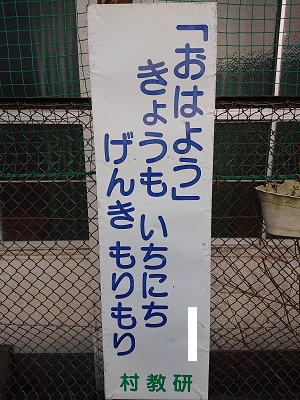 「おはよう」
きょうも いちにち
げんき もりもり
村教研